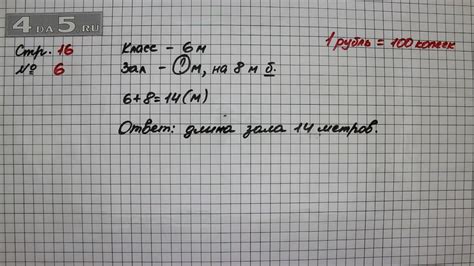 4 ДА 5.RU
Стр. 16
№ 6
Класс - 6 м
Зал - ? м, на 8 м б.
6+8=14(м)
Ответ: длина зала 14 метров.
1 рубль = 100 копеек